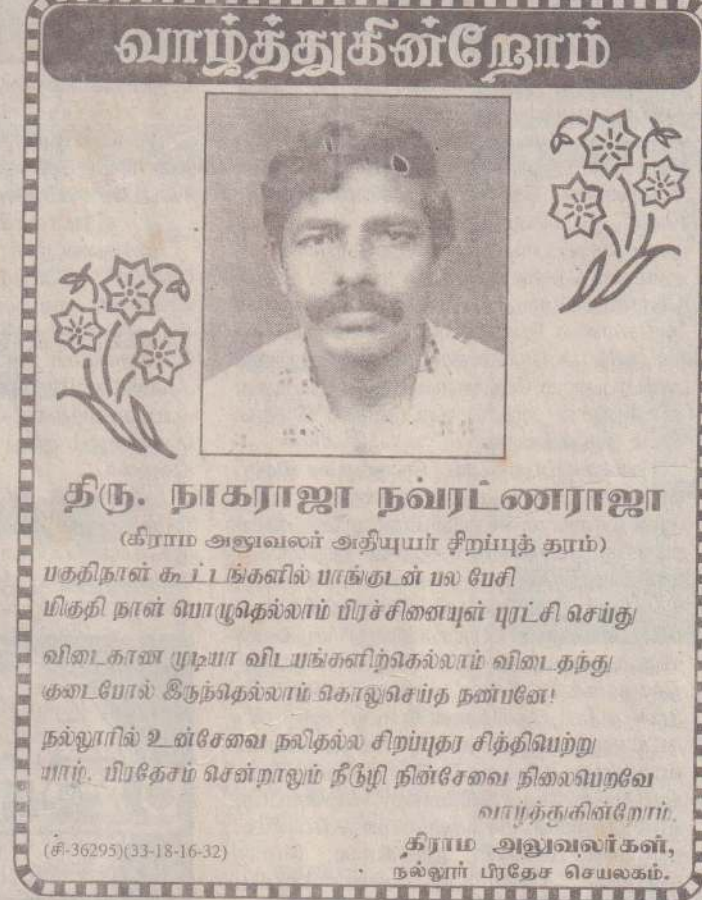 வாழ்த்துகின்றோம்
திரு. நாகராஜா நவரட்ணராஜா
(கிராம அலுவலர் அதியுயர் சிறப்புத் தரம்)
பகுதிநாள் கூட்டங்களில் பாங்குடன் பல பேசி
மிகுதி நாள் பொழுதெல்லாம் பிரச்சினையுள் புரட்சி செய்து
விடைகாண முடியா விடயங்களிற்கெல்லாம் விடைதந்து
குடைபோல் இருந்தெல்லாம் கொலுசெய்த நண்பனே!
நல்லூரில் உன்சேவை நலிதல்ல சிறப்புதர சித்திபெற்று
யாழ். பிரதேசம் சென்றாலும் நீடூழி நின்சேவை நிலைபெறவே
வாழ்த்துகின்றோம்.
கிராம அலுவலர்கள்,
நல்லூர் பிரதேச செயலகம்.
(சி-36295)(33-18-16-32)